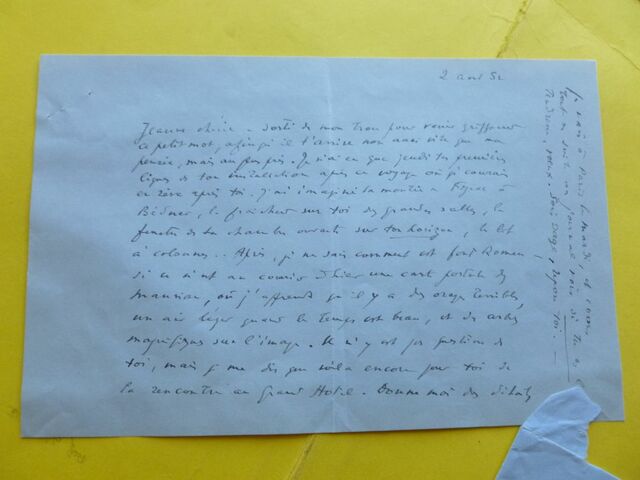 2 août 52
Jeanne chérie. Sorti de mon trou pour venir griffonner
ce petit mot, afin qu'il t'arrive non aussi vite que ma
pensée, mais au plus près. Je n'ai eu que jeudi tes premières
lignes de ton installation après ce voyage où je courais
en rêve après toi. J'ai imaginé la montée à
la fraîcheur sur toi des grandes salles, la
fenêtre de ta chambre ouvrant sur ton horizon, le lit
à colonnes.. Après, je ne sais comment est
si ce n'est au courrier d'hier une carte postale de
où j'apprends qu'il y a des orages terribles,
un air léger quand le temps est beau, et des arbres
magnifiques sur l'image. Il n'y est pas question de
toi, mais je me dis que voilà encore pour toi de
la rencontre au Grand Hotel. Donne moi des détails
Je vais à Paris le mardi, et
tout de suite un journal
Sois sage, repose toi. —